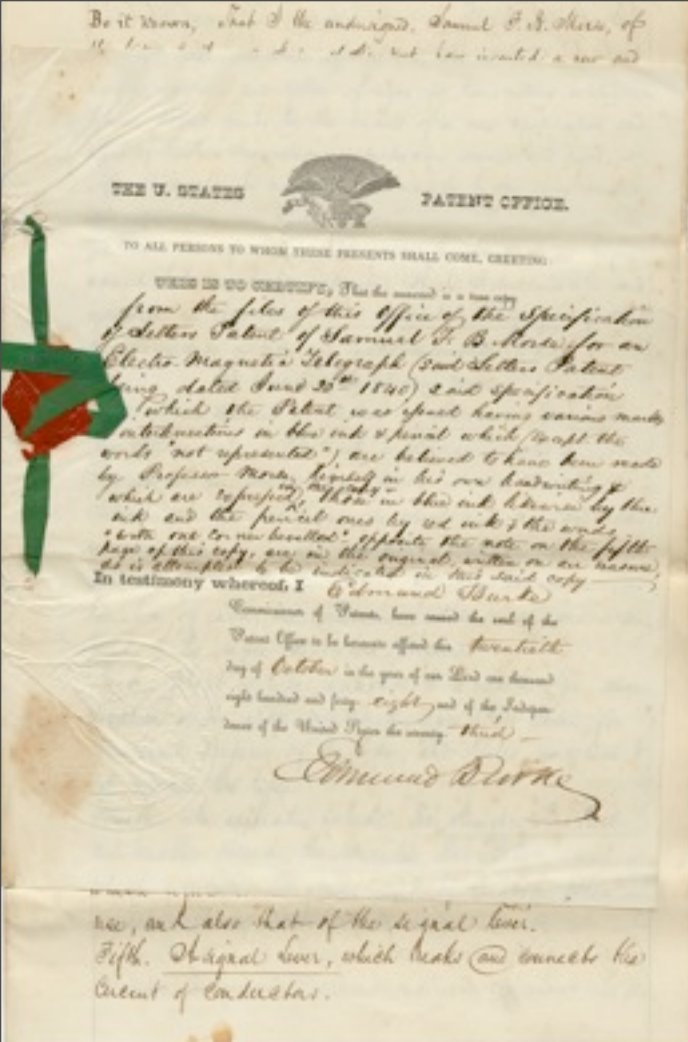 Be it known, That I the undersigned, Samuel F. B. Morse, of
have invented a new and
THE U. STATES PATENT OFFICE.
TO ALL PERSONS TO WHOM THESE PRESENTS SHALL COME, GREETING:
THIS IS TO CERTIFY, That the annexed is a true copy
from the files of this Office of the Specification
of Letters Patent of Samuel F. B Morse for an
Electro-Magnetic Telegraph (said Letters Patent
being dated June 20th 1840) said specification
which the Patent was issued having various marks
interlineations in blue ink & pencil which (except the
words "not represented") are believed to have been made
by Professor Morse, himself in his own handwriting &
which are in this copy those in blue ink likewise by blue
ink and the pencil ones by red ink & the words
"with one corner bevelled" opposite the note on the fifth
page of this copy, are in the original, written on an erasure,
as is attempted to be indicated in this said copy
In testimony whereof, I Edmund Burke
Commissioner of Patents, have caused the seal of the
Patent Office to be hereunto affixed this twentieth
day of October in the year of our Lord one thousand
eight hundred and forty eight and of the Indepen-
dence of the United States the seventy third
Edmund Burke
use, and also that of the signal lever.
Fifth. A signal Lever, which breaks and connects the
Circuit of Conductors.